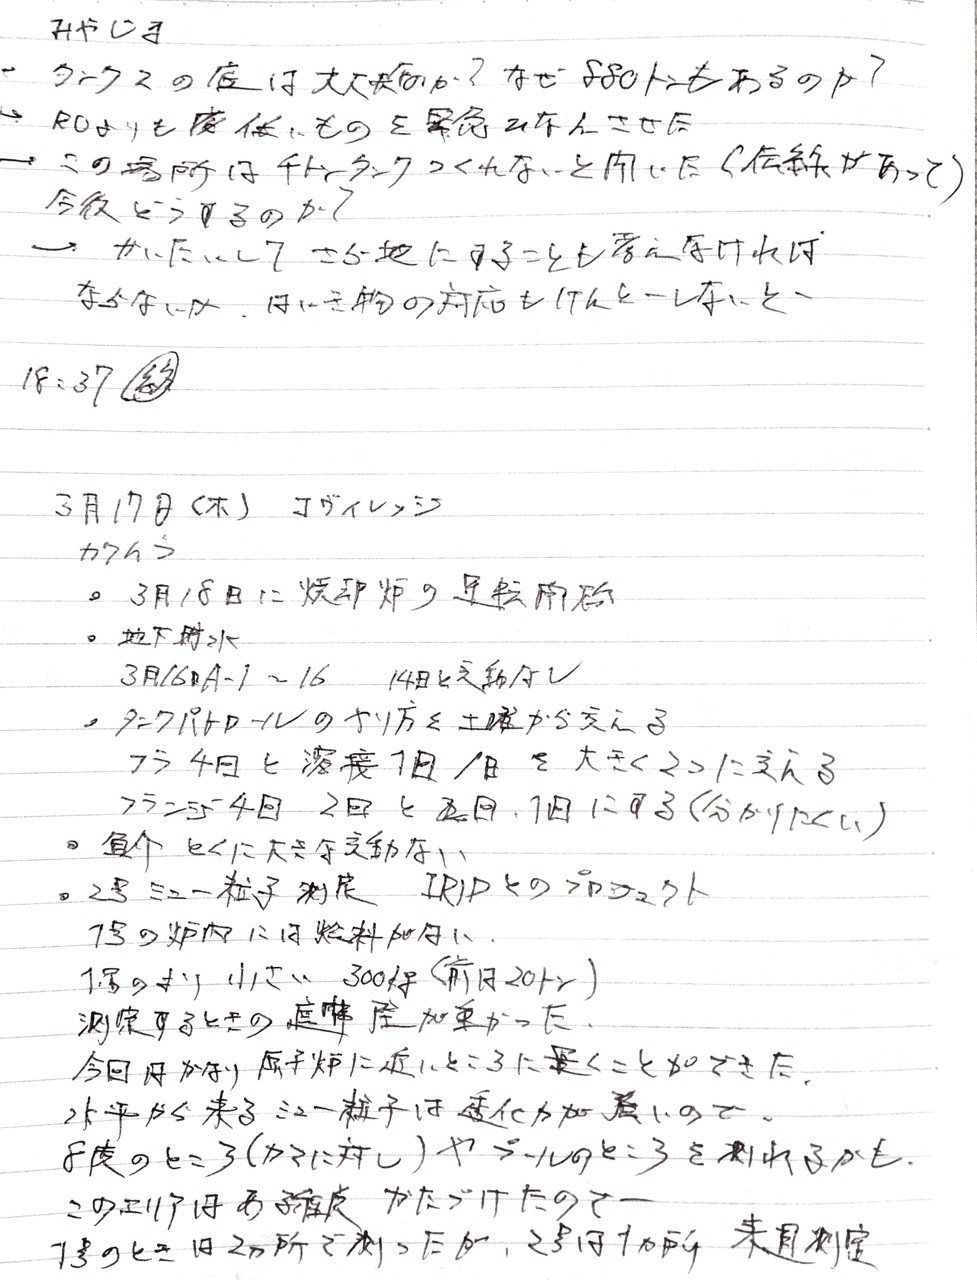 みやじま
・タンクスの底は大丈夫か?なぜ880トンもあるのか?
→ROよりも度低いものを緊急ひなんさせた
→この場所は千トンタンクつくれないと聞いた(伝線があって)
今後どうするのか?
→かいたいしてさら地にすることも考えなければ
ならないか、はいき物の対応もけんとーしないとー
18:37 終
3月17日(木) Jヴィレッジ
カワムラ
・3月18日に焼却炉の運転開始
・地下貯水
3月16日A-1〜16 14日と変動なし
・タンクパトロールのやり方を土曜から変える
フラ4回と溶接1回/日を大きく2つに変える
フランジ4回 2回と 1回にする(分かりにくい)
・負介 とくに大きな変動ない
・2号ミュー粒子測定 IRIDとのプロジェクト
1号の炉内には燃料がない.
1号のより小さい 300kg(前は20トン)
測定するときの 壁が重かった.
今回はかなり原子炉に近いところに置くことができた.
水平から来るミュー粒子は透化力が いので、
8度のところ(カマに対し)やプールのところを測れるかも.
このエリアはある程度かたづけたのでー
1号のときは2カ所で測ったが、2号は1カ所 来月測定